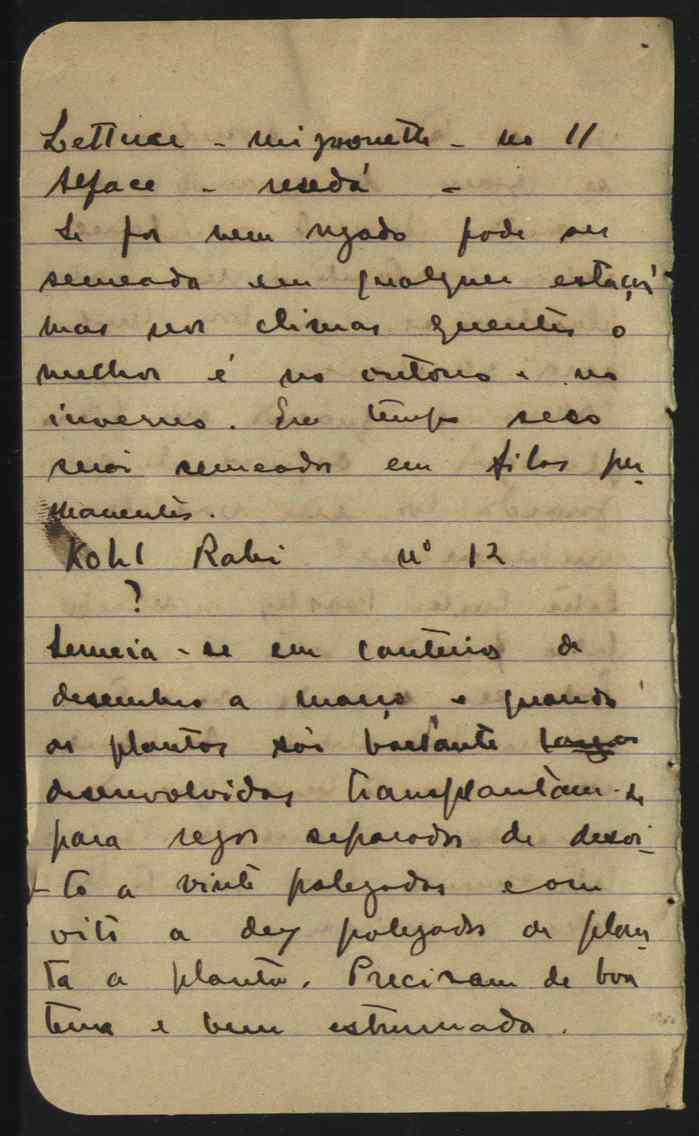 Lettuce - mignonette - no 11
Alface - resedá -
Se for bem regado pode ser
semeada em qualquer estação
mas nos climas quentes o
melhor é no outono e no
inverno. Em tempo seco
será semeados em filas per-
manentes.
Kohl Rabi nº 12
?
Semeia-se em canteiros de
desembro a março e quando
as plantas são bastante
desenvolvidas transplantam-se
para regos separados de desoi-
-to a vinte polegadas e com
oito a dez polegadas de plan-
ta a planta. Precisam de boa
terra e bem estrumada.